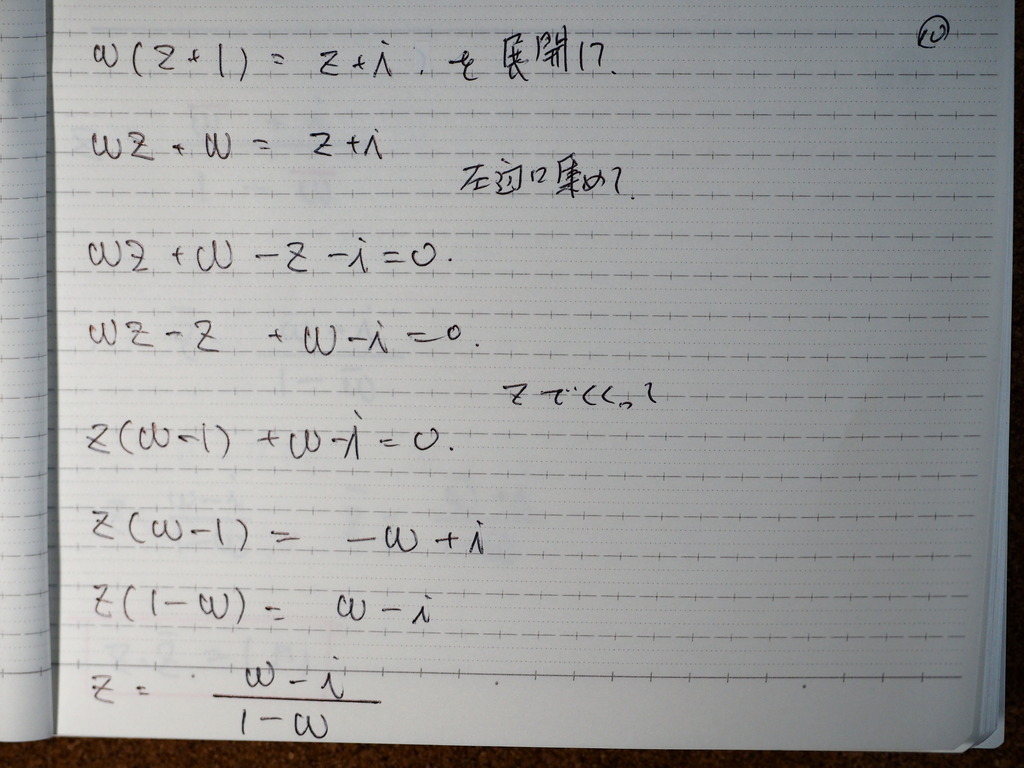 ⑩
w(z+1) = z+i. を展開して.
wz + w = z+i
左辺に集めて.
wz + w - z - i = 0.
wz - z + w - i = 0.
zでくくって
z(w-1) + w - i = 0.
z(w-1) = -w + i
z(1-w) = w - i
z = \frac{w-i}{1-w}